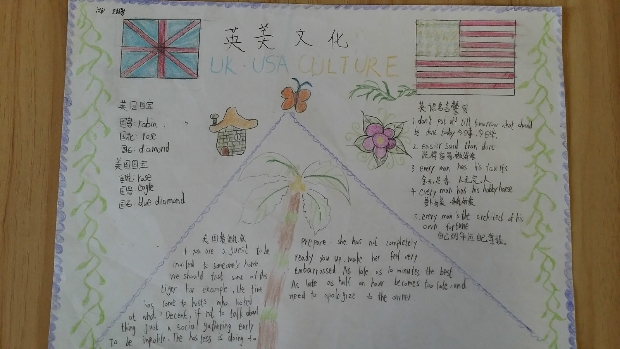 英美文化
UK·USA CULTURE
英国国宝
国鸟: robin
国花: rose
国石: diamond
美国国宝
国花: rose
国鸟: eagle
国石: blue diamond
英语名言警句
1. don't put off till tomorrow what should
be done today 今日事,今日毕.
2. easier said than done
3. every man has his faults
金无足赤 人无完人
4. every man has his hobbyhorse
5. every man is the architect of his
own fortune
自己的命运自己掌握
If you are a guest to be
invited to someone's home
we should
for example, the time
to hosts who hosted
at what Decent, if not to talk about
thing just a social gathering early
To be impolite. The hostess is doing to
Prepare she has not completely
ready you up, make her feel very
embarrassed As late as 10 minutes the best
As late as half an hour becomes too late and
need to apologize to the owner